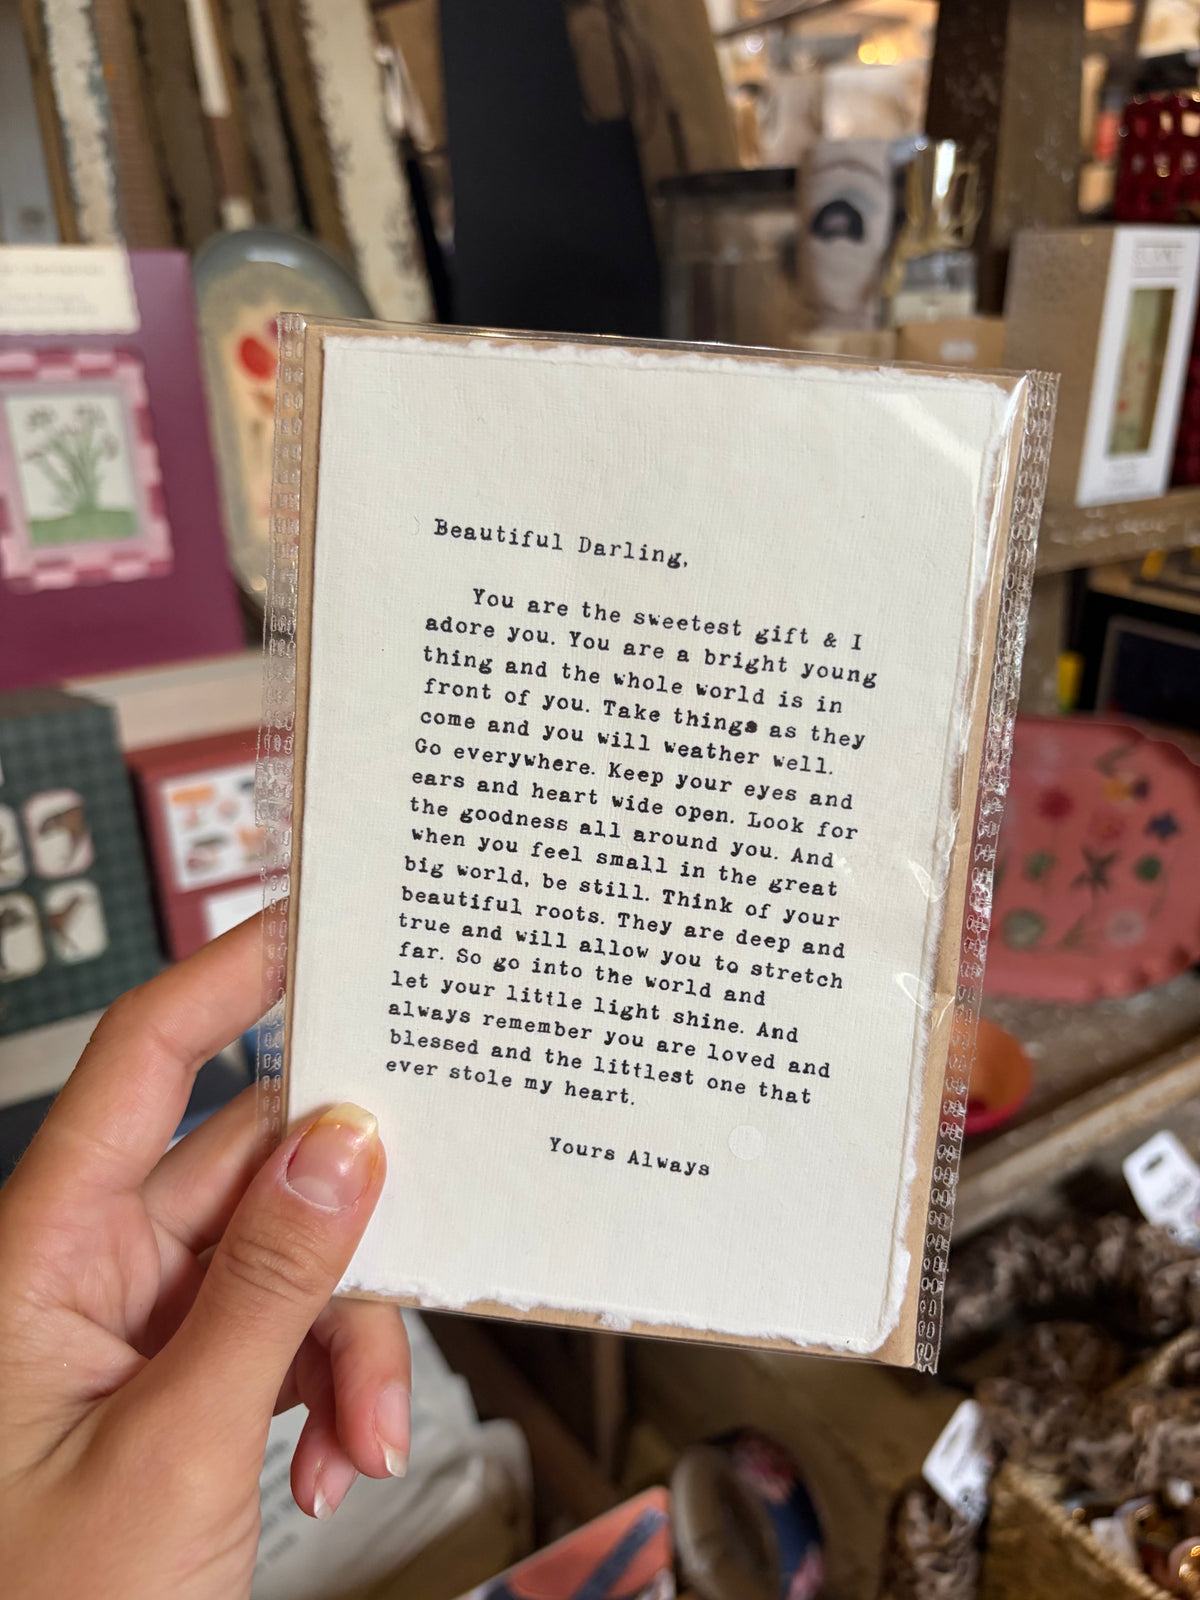 Beautiful Darling,
You are the sweetest gift & I
adore you. You are a bright young
thing and the whole world is in
front of you. Take things as they
come and you will weather well.
Go everywhere. Keep your eyes and
ears and heart wide open. Look for
the goodness all around you. And
when you feel small in the great
big world, be still. Think of your
beautiful roots. They are deep and
true and will allow you to stretch
far. So go into the world and
let your little light shine. And
always remember you are loved and
blessed and the littlest one that
ever stole my heart.
Yours Always